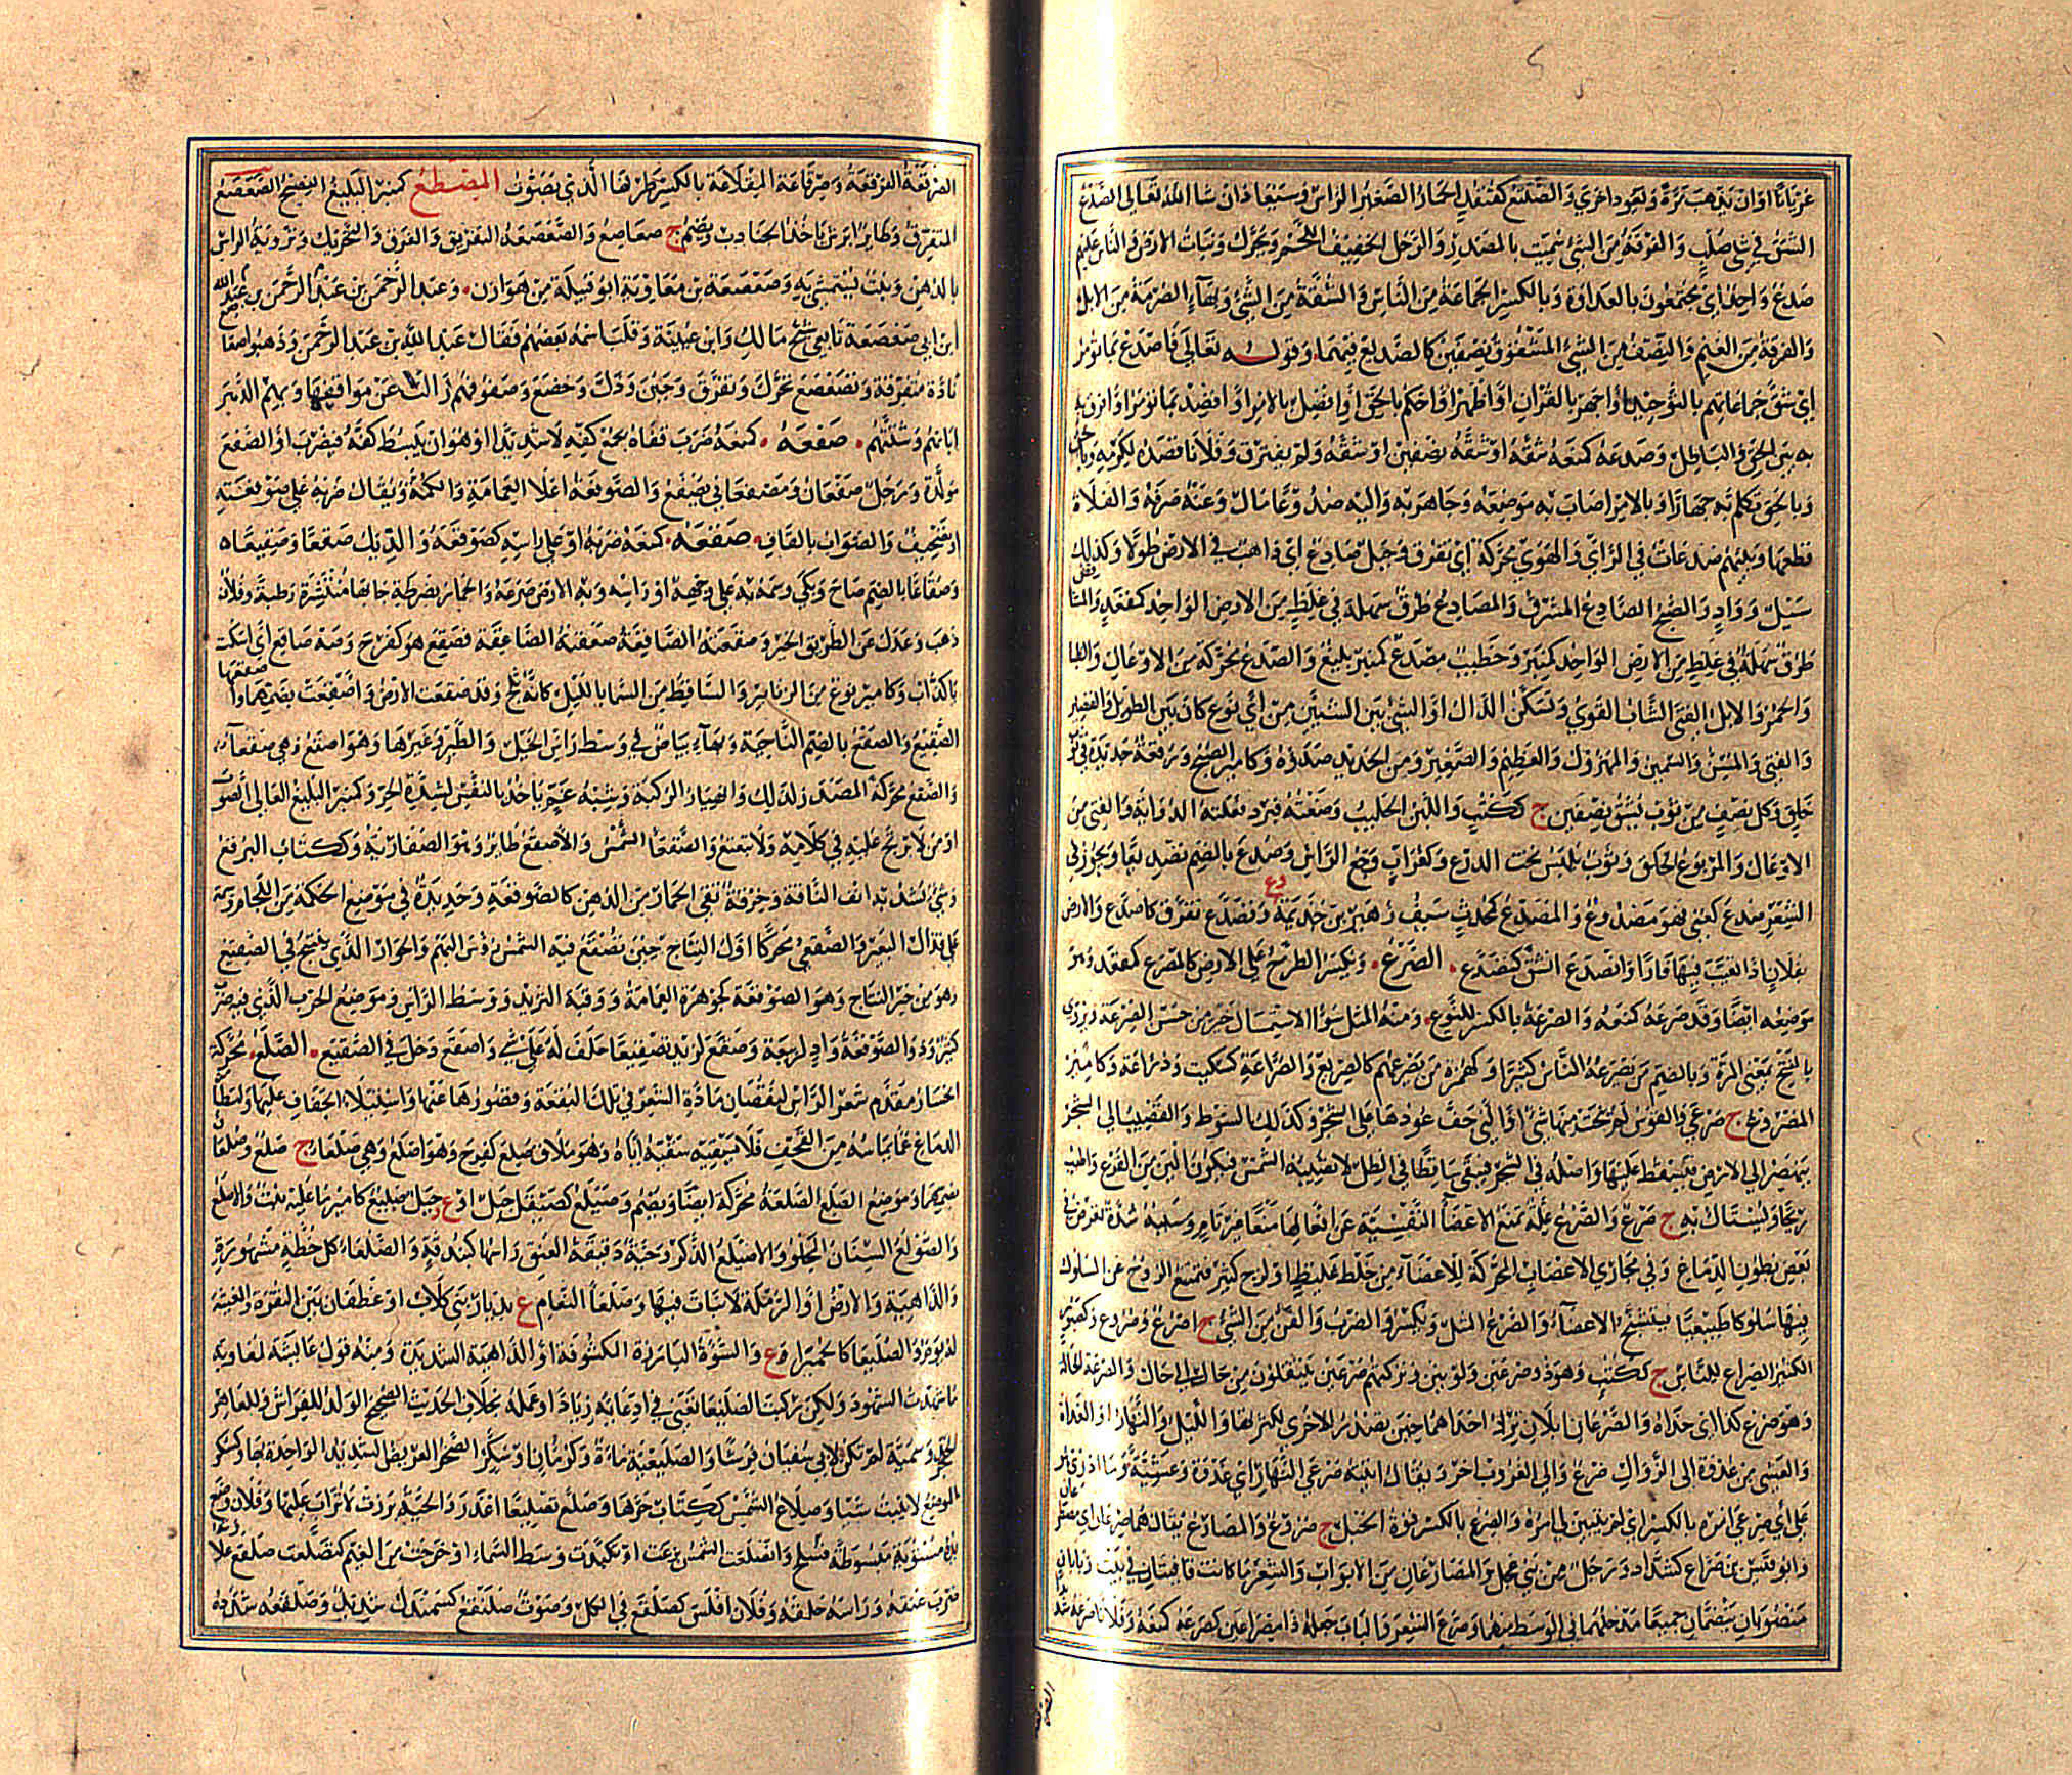 عريانا اوان يذهب مرة ويعود اخري والصلتع كقنفذ الحمار الصغير الراس وسيعاد ان شاالله تعالي الصدع
الشق في شي صلب والفرقة من الشي سميت بالمصدر والرجل الخفيف اللحم ويحرك ونبات الارض والناس عليهم
صدع واحد اي مجتمعون بالعداوة وبالكسر الجماعة من الناس والشقة من الشي وبهاء الصرمة من الابل
والفرقة من الغنم والنصف من الشي المشقوق نصفين كالصديع فيهما وقوله تعالي فاصدع بما تومر
اي شق جماعاتهم بالتوحيد او اجهر بالقران او اظهر او احكم بالحق او افصل بالامر او اقصد بما تومر او افرق به
به بين الحق والباطل وصدعه كمنعه شقه او شقه نصفين او شقه ولم يفترق وفلانا قصده لكرمه
وبالحق تكلم به جهارا وبالامر اصاب به موضعه وجاهر به واليه صدوعا مال وعنه صرفه والفلاة
قطعها وبينهم صدعات في الراي والهوي محركة اي تفرق وجبل صادع اي ذاهب في الارض طولا وكذلك
سيل وواد والصبح الصادع المشرق والمصادع طرق سهلة في غلظ من الارض الواحد كمقعد والمشا
طرق سهلة في غلظ من الارض الواحد كمنبر وخطيب مصدع كمنبر بليغ والصدع محركة من الاوعال والظبا
والحمر والابل الفتي الشاب القوي وتسكن الدال او الشي بين الشيين من اي نوع كان بين الطويل والقصير
والفتي والمسن والسمين والمهزول والعظيم والصغير ومن الحديد صداه وكامير الصبح ورقعة جديدة في ثوب
خلق وكل نصف من ثوب يشق نصفين ج ككتب واللبن الحليب وضعته فبرد فعلته الدواية والفتي من
الاوعال والمربوع الخلق وثوب يلبس تحت الدرع وكغراب وجع الراس وصدع بالضم تصديعا ويجوز في
الشعر صدع كعني فهو مصدوع والمصدع كمحدث سيف زهير بن جذيمة وتصدع تفرق كاصدع والارض
بفلان اذا تغيب فيها فارا وانصدع انشق كتصدع الصرع ويكسر الطرح علي الارض كالمصرع كمقعد وهو
موضعه ايضا وقد صرعه كمنعه والصرعة بالكسر للنوع ومنه المثل سوء الاستمساك خير من حسن الصرعة ويروي
بالفتح بمعني المرة وبالضم من يصرعه الناس كثيرا وكهمزة من يصرعهم كالصريع والصراعة كسكيت ودراعة وكامير
المصروع ج صرعي والقوس لم ينحت منها شي او التي جف عودها علي الشجر وكذلك السوط والقضيب الي الشجر
ينهصر الي الارض فيسقط عليها واصله في الشجر فيبقي ساقطا في الظل لا تصيبه الشمس فيكون الين من الفرع واطيب
ريحا ويستاك به ج صرع والصرع علة تمنع الاعضاء النفسية عن افعالها منعا غير تام وسببه شدة تعرض في
بعض بطون الدماغ وفي مجاري الاعصاب المحركة للاعضاء من خلط غليظ او لزج كثير فتمتنع الروح عن السلوك
فيها سلوكا طبيعيا فتتشنج الاعضاء والصرع المثل ويكسر والضرب والفن من الشي ج اصرع وصروع وكصبور
الكثير الصراع للناس ج ككتب وهو ذو صرعين ولونين وتركتهم صرعين ينتقلون من حال الي حال والصرعة الحالة
وهو صرع كذا اي حذاه والصرعان ابلان ترد احداهما حين تصدر الاخري لكثرتها والليل والنهار او الغداة
والعشي من غدوة الي الزوال صرع والي الغروب اخر ويقال اتيته صرعي النهار اي غدوة وعشية وما ادري هو
علي اي صرعي امره بالكسر اي لم يتبين لي امره والصرع بالكسر قوة الحبل ج صروع والمصارع يقال هما صرعان اي مصطر
وابو قيس بن صراع كشداد رجل من بني عجل والمصراعان من الابواب والشعر ما كانت قافيتان في بيت وبابان
منصوبان ينضمان جميعا مدخلهما في الوسط منهما وصرع الشعر والباب جعله ذا مصراعين كصرعه كمنعه وفلانا صرعه شد
الصرقعة الفرقعة وصرقاعة المقلاعة بالكسر طرفها الذي يصوت المصطع كمنبر البليغ الفصيح الصعصع
المتفرق وطاير ابرش ياخذ الجنادب ويضم ج صعاصع والصعصعة التفريق والفرق والتحريك وتروية الراس
بالدهن ونبت يستمشي به وصعصعة بن معاوية ابو قبيلة من هوازن وعبد الرحمن بن عبد الرحمن بن عبد الله
ابن ابي صعصعة تابعي شيخ مالك وابن عيينة وقلب اسمه بعضهم فقال عبد الله بن عبد الرحمن وذهبوا صعا
نادة متفرقة وتصعصع تحرك وتفرق وجبن وذل وخضع وصفوفهم زالت عن مواقفها وبهم الدهر
ابادهم وشتتهم صفعه كمنعه ضرب قفاه بجمع كفه لا شديدا او هو ان يبسط كفه فيضرب او الصفع
مولد ورجل صفعان ومصفعاني يصفع والصوفعة اعلا العمامة والكمة ويقال ضربه علي صوفعته
او تصحيف والصواب بالقاف صقعه كمنعه ضربه او علي راسه كصوقعه والديك صقعا وصقيعا
وصقاعا بالضم صاح وبكي وسمه به علي وجهه او راسه وبه الارض صرعه والحمار بضرطة جا بها منتشرة رطبة وفلان
ذهب وعدل عن الطريق الخير وصقعته الصاقعة صعقته الصاعقة فصقع هو كفرح وصه صاقع اي اسكت
يا كذاب وكامير نوع من الزنابير والساقط من السما بالليل كانه ثلج وقد صقعت الارض واصقعت بضمهما واصقعها
الصقيع والصقع بالضم الناحية وبهاء بياض في وسط راس الخيل والطير وغيرها وهو اصقع وهي صقعاء
والصقع محركة المصدر لذلك وانهيار الركية وشبه غم ياخذ بالنفس لشدة الحر وكمنبر البليغ العالي الصوت
او من لا يرتج عليه في كلامه ولا يتعتع والصقعا الشمس والاصقع طاير وهو الصفارية وككتاب البرقع
وشي تشد به انف الناقة وخرقة تقي الخمار من الدهن كالصوقعة وحديدة في موضع الحكمة من اللجام وسمة
علي قذال البعير والصقعي محركا اول النتاج حين تصقع فيه الشمس روس البهم والحوار الذي ينتج في الصقيع
وهو من خير النتاج وهو الصوقعة كجوهرة العمامة ووقبة الثريد ووسط الراس وموضع الحرب الذي فيه ضرب
كثير وذو الصوقعة واد لربيعة وصقع لزيد تصقيعا حلف له علي شي واصقع دخل في الصقيع الصلع محركة
انحسار مقدم شعر الراس لنقصان مادة الشعر في تلك البقعة وقصورها عنها واستيلاء الجفاف عليها ولتطامن
الدماغ عما يماسه من القحف فلا يسقيه سقيه اياه وهو ملاق صلع كفرح وهو اصلع وهي صلعا ج صلع وصلعان
بضمهما وموضع الصلع الصلعة محركة ايضا ويضم وصيلع كصيقل جبل او ع وجبل صليع كامير ما عليه نبت والاصلع
والصولع السنان المجلو والاصيلع الذكر وحية دقيقة العنق راسها كبندقة والصلعاء كل خطة مشهورة
والداهية والارض او الرملة لا نبات فيها وصلعا النعام ع بديار بني كلاب او غطفان بين النقرة والمغيثة
له يوم والصليعا كالحميرا وع والسوءة البارزة المكشوفة او الداهية الشديدة ومنه قول عايشة لمعاوية
ما شهدت الشهود ولكن ركبت الصليعا تعني في ادعايه زيادا وعمله بخلاف الحديث الصحيح الولد للفراش وللعاهر
الحجر وسمية لم تكن لابي سفيان فراشا والصليعية ماءة وكرمان او سكر الصخر العريض الشديد الواحدة بها وكسكر
الموضع لا ينبت شيا وصلاع الشمس ككتاب حرها وصلع تصليعا اعذر والحية برزت لا تراب عليها وفلان وضع
يده مستوية مبسوطة فسلح وانصلعت الشمس بزغت او تكبدت وسط السماء او خرجت من الغيم كتصلعت صلفع علاوته
ضرب عنقه وراسه حلقه وفلان افلس كصلقع في الكل وصوت صلنفع كسمندل شديد وصلقعه شدده